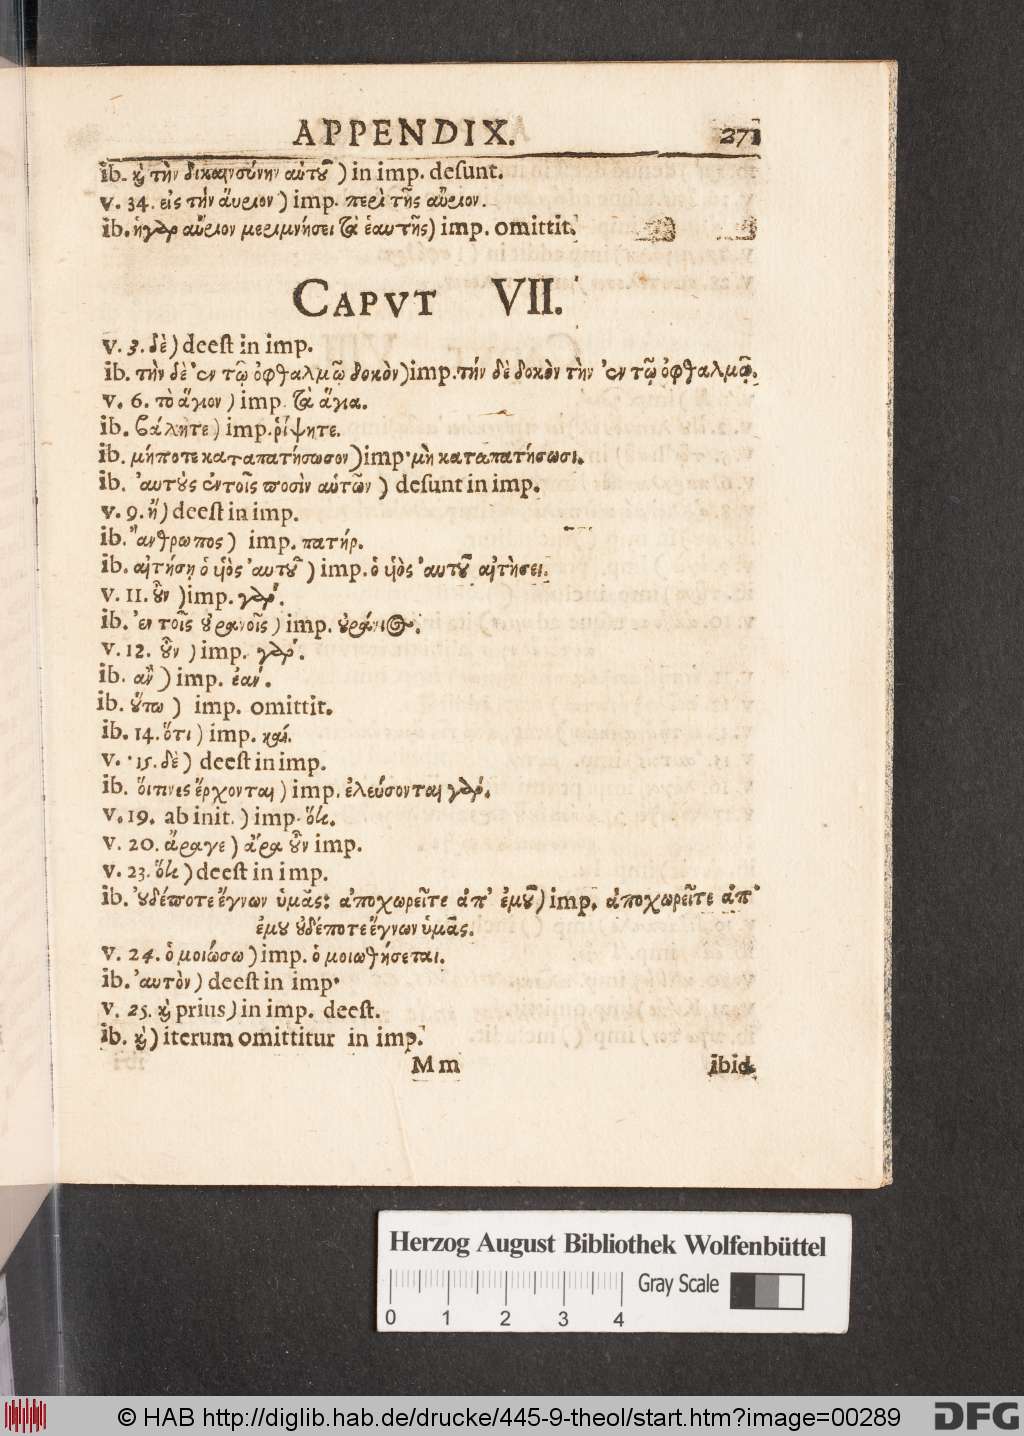 APPENDIX. 271
ib. ϗ τὴν δικαιοσύνην αὐτοῦ ) in imp. desunt.
v. 34. εἰς τὴν ἄυριον ) imp. περὶ τῆς αὔριον.
ib. ἡ γὰρ αὔριον μεριμνήσει τὰ ἑαυτῆς) imp. omittit.
CAPVT VII.
v. 3. δὲ) deeſt in imp.
ib. τὴν δὲ ἐν τῷ ὀφθαλμῷ δοκὸν) imp. τὴν δὲ δοκὸν τὴν ἐν τῷ ὀφθαλμῷ.
v. 6. τὸ ἅγιον ) imp. τὰ ἅγια.
ib. βάλητε ) imp. ῥίψητε.
ib. μήποτε καταπατήσωσον) imp. μὴ καταπατήσωσι.
ib. ἀυτοὺς ἐν τοῖς ποσὶν αὐτῶν ) desunt in imp.
v. 9. ἤ) deeſt in imp.
ib. ἄνθρωπος) imp. πατήρ.
ib. αἰτήσῃ ὁ υἱὸς ἀυτοῦ ) imp. ὁ υἱὸς ἀυτοῦ αἰτήσει.
v. 11. οὖν ) imp. γὰρ.
ib. ἐν τοῖς οὐρανοῖς ) imp. οὐράνιος.
v. 12. οὖν ) imp. γὰρ.
ib. ἂν ) imp. ἐαν.
ib. οὕτω ) imp. omittit.
ib. 14. ὅτι ) imp. καί.
v. 15. δὲ) deeſt in imp.
ib. ὅιτινες ἔρχονται ) imp. ἐλεύσονται γὰρ.
v. 19. ab init. ) imp. ὅτι.
v. 20. ἄραγε ) ἄρα οὖν imp.
v. 23. ὅτι ) deeſt in imp.
ib. οὐδέποτε ἔγνων ὑμᾶς: ἀποχωρεῖτε ἀπ' ἐμοῦ) imp. ἀποχωρεῖτε ἀπ'
ἐμοῦ οὐδέποτε ἔγνων ὑμᾶς.
v. 24. ὁμοιώσω ) imp. ὁμοιωθήσεται.
ib. ἀυτὸν ) deeſt in imp.
v. 25. ϗ prius) in imp. deeſt.
ib. ϗ) iterum omittitur in imp.
Mm ibid.
Herzog August Bibliothek Wolfenbüttel
Gray Scale
0 1 2 3 4
© HAB http://diglib.hab.de/drucke/445-9-theol/start.htm?image=00289
DFG